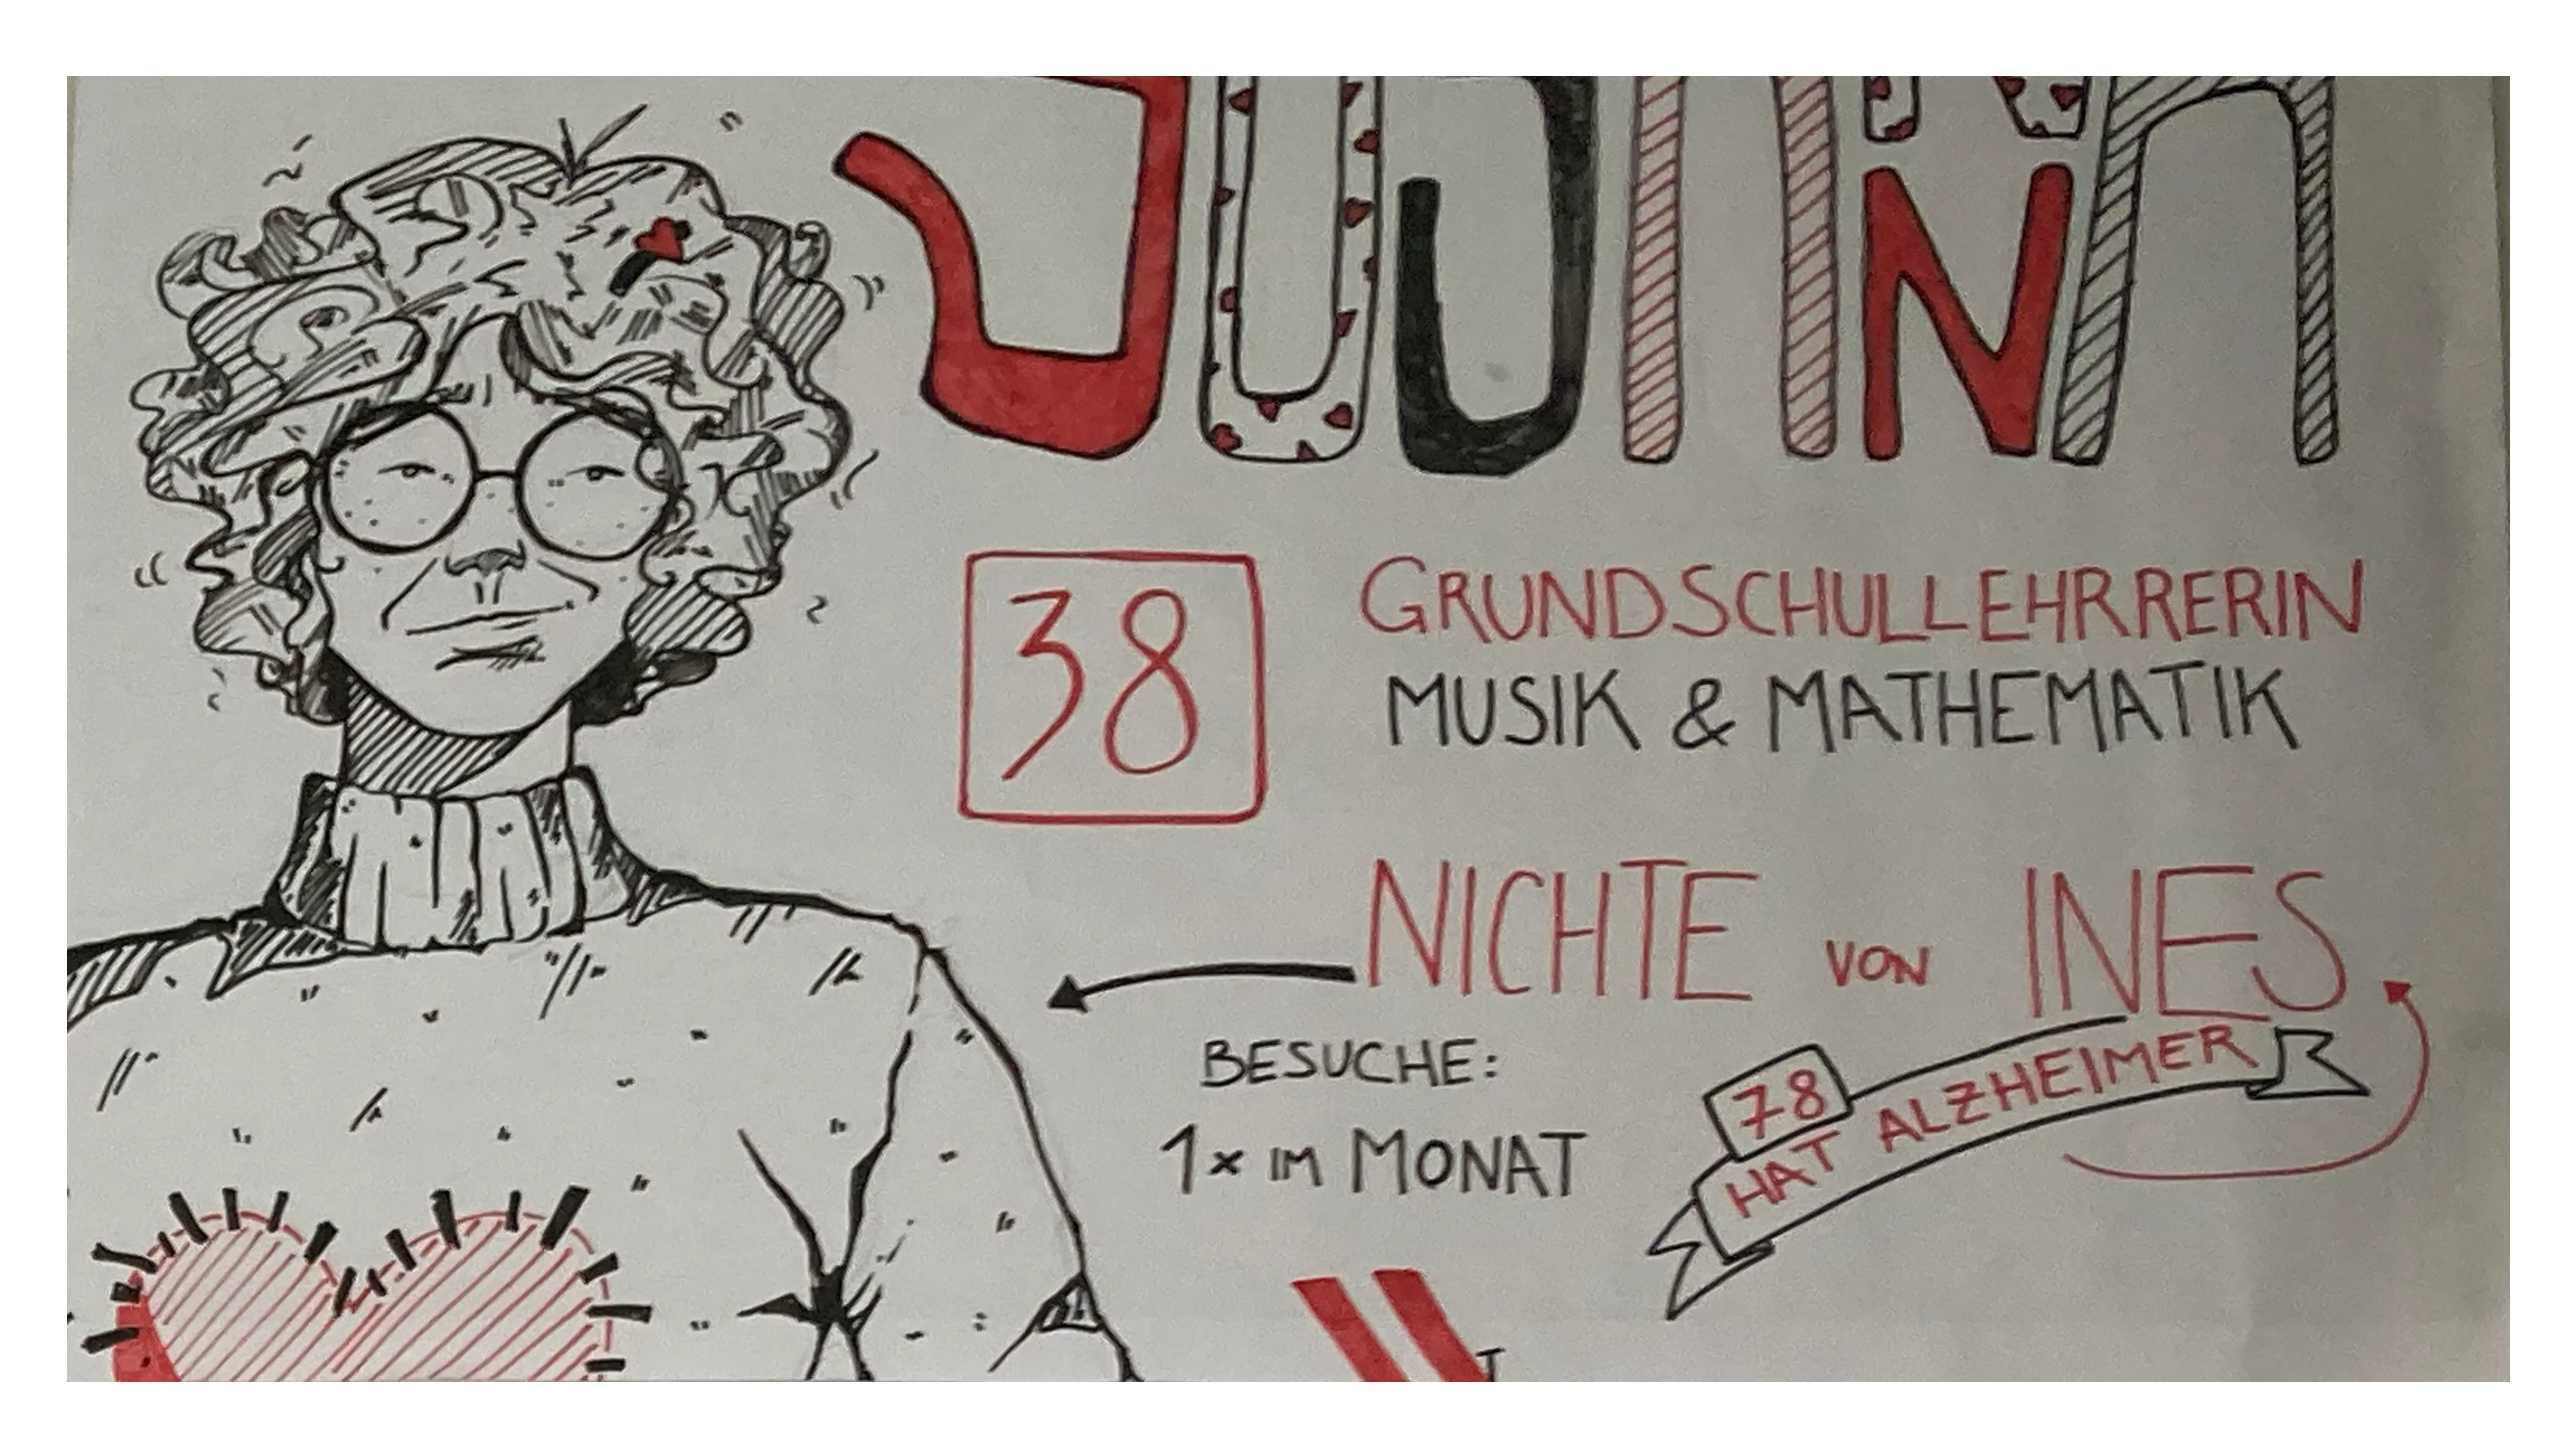 38
GRUNDSCHULLEHRRERIN
MUSIK & MATHEMATIK
NICHTE VON INES
BESUCHE:
1x IM MONAT
78
HAT ALZHEIMER